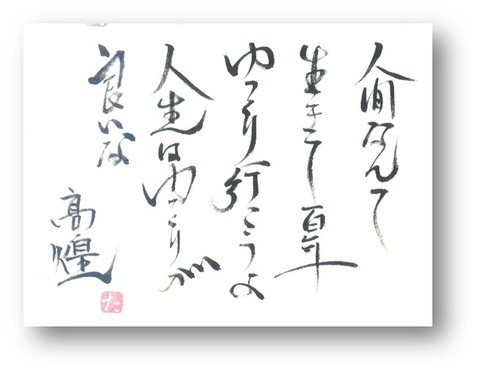 人間なんて
生きて百年
ゆっくり行こうよ
人生はゆっくりが
良いな
高煌
た